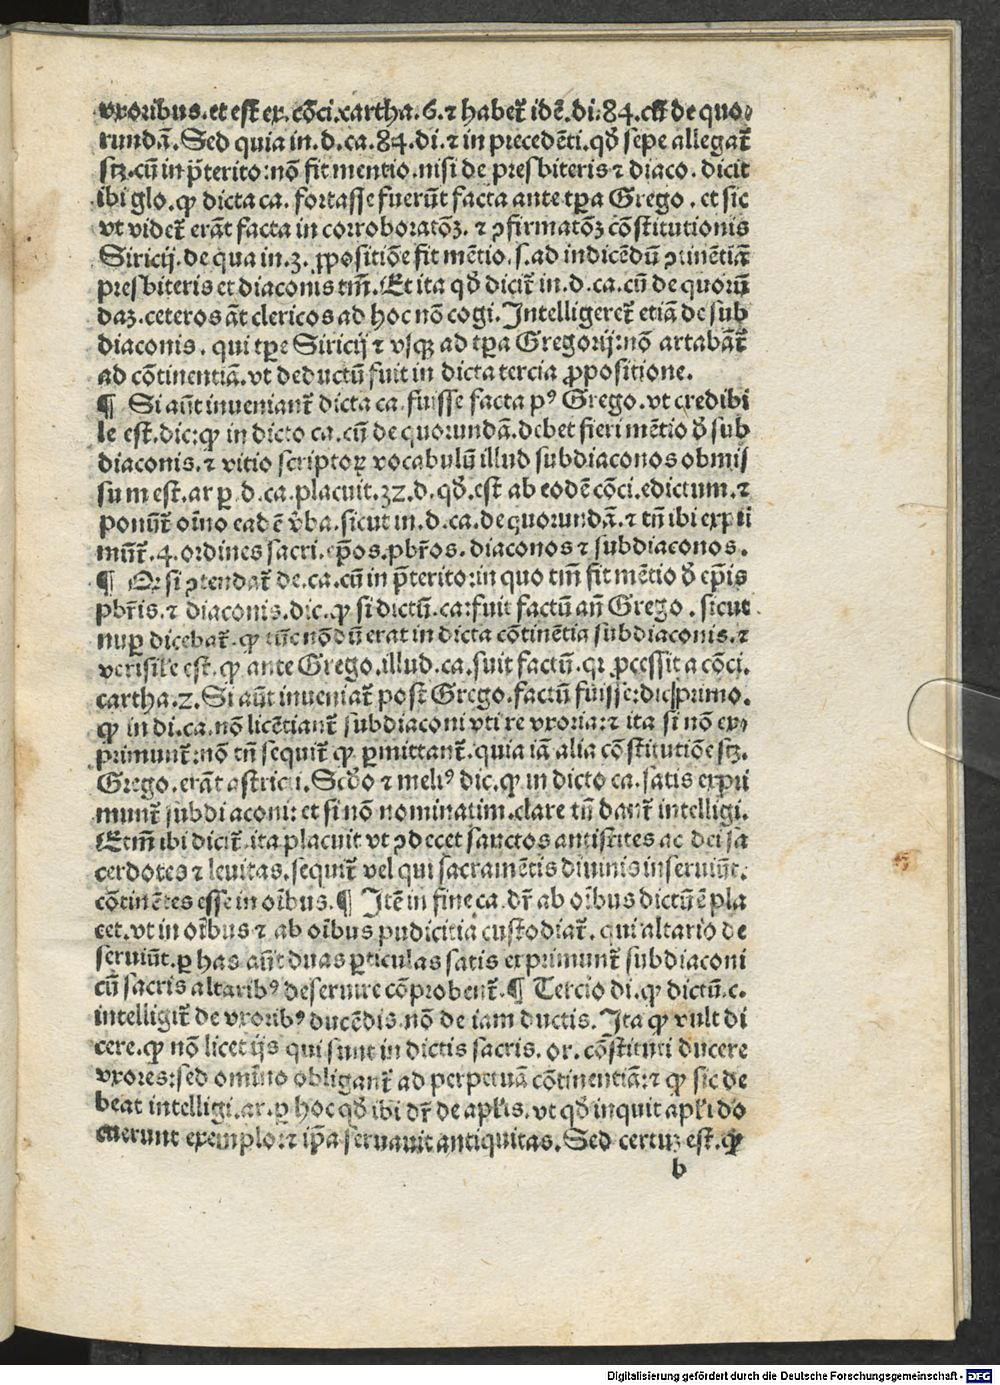 vxoribus. et est ex. cōci. cartha. 6. ⁊ habet̄ idē. di: 84. cū de quo⸗
rundā. Sed quia in. d. ca. 84. di. ⁊ in precedēti. qð sepe allegat̄
stꝫ. cū in p̄terito: nō fit mentio. nisi de presbiteris ⁊ diaco. dicit
ibi glo. ꝙ dicta ca. fortasse fuerūt facta ante tp̄a Grego. et sic
vt videt̄ erāt facta in corroboratōꝫ. ⁊ ꝯfirmatōꝫ cōstitutionis
Siricij. de qua in. 3. ꝓpositiōe fit mētio. s. ad indicēdū ꝯtinētiā
presbiteris et diaconis tm̄. Et ita qð dicit̄ in. d. ca. cū de quorū
daꝫ. ceteros āt clericos ad hoc nō cogi. Intelligeret̄ etiā de sub
diaconis. qui tp̄e Siricij ⁊ vsqꝫ ad tp̄a Gregorij: nō artabāt̄
ad cōtinentiā. vt deductū fuit in dicta tercia ꝓpositione.
¶ Si aūt inueniant̄ dicta ca. fuisse facta pꝰ Grego. vt credibi
le est. dic: ꝙ in dicto ca. cū de quorundā. debet fieri mētio ð sub
diaconis. ⁊ vitio scriptoꝝ vocabulū illud subdiaconos obmis
sum est. ar ꝑ. d. ca. placuit. 32. d. qð. est ab eodē cōci. edictum. ⁊
ponūt̄ oīno eadē v̄ba. sicut in. d. ca. de quorundā. ⁊ tn̄ ibi expri
mūt̄. 4. ordines sacri. ep̄os. pbr̄os. diaconos ⁊ subdiaconos.
¶ Qr si ꝯtendat̄ de. ca. cū in p̄terito: in quo tm̄ fit mētio ð ep̄is
pbr̄is. ⁊ diaconis. dic. ꝙ si dictū. ca: fuit factū an̄ Grego. sicut
nuꝑ dicebat̄. ꝙ tūc nōdū erat in dicta cōtinētia subdiaconis. ⁊
verisile est. ꝙ ante Grego. illud. ca. fuit factū. qꝛ ꝓcessit a cōci.
cartha. 2. Si aūt inueniat̄ post Grego. factū fuisse: dic primo.
ꝙ in di. ca. nō licētiant̄ subdiaconi vti re vxoria: ⁊ ita si nō ex⸗
primunt̄: nō tn̄ sequit̄ ꝙ ꝑmittant̄. quia iā alia cōstitutiōe stꝫ.
Grego. erāt astricti. Scðo ⁊ meliꝰ dic. ꝙ in dicto ca. satis expri
munt̄ subdiaconi: et si nō nominatim. clare tn̄ dant̄ intelligi.
Etm̄ ibi dicit̄. ita placuit vt ꝯdecet sanctos antistites ac dei sa
cerdotes ⁊ leuitas. sequit̄ vel qui sacramētis diuinis inseruiūt.
cōtinētes esse in oībus. ¶ Itē in fine ca. dr̄ ab oībus dictūē pla
cet. vt in oībus ⁊ ab oībus pudicitia custodiat̄. qui altario de
seruiūt. ꝑ has aūt duas ꝑticulas satis exprimunt̄ subdiaconi
cū sacris altaribꝰ deseruire cōprobent̄. ¶ Tercio di. ꝙ dictū. c.
intelligit̄ de vxoribꝰ ducēdis. nō de iam ductis. Ita ꝙ vult di
cere. ꝙ nō licet ijs qui sunt in dictis sacris. or. cōstituti ducere
vxores: sed omīno obligant̄ ad perpetuā cōtinentiā: ⁊ ꝙ sic de
beat intelligi. ar. ꝑ hoc qð ibi dr̄ de apl̄is. vt qð inquit apl̄i do
cuerunt exemplo: ⁊ ip̄a seruauit antiquitas. Sed certuꝫ est. ꝙ
b
Digitalisierung gefördert durch die Deutsche Forschungsgemeinschaft - DFG